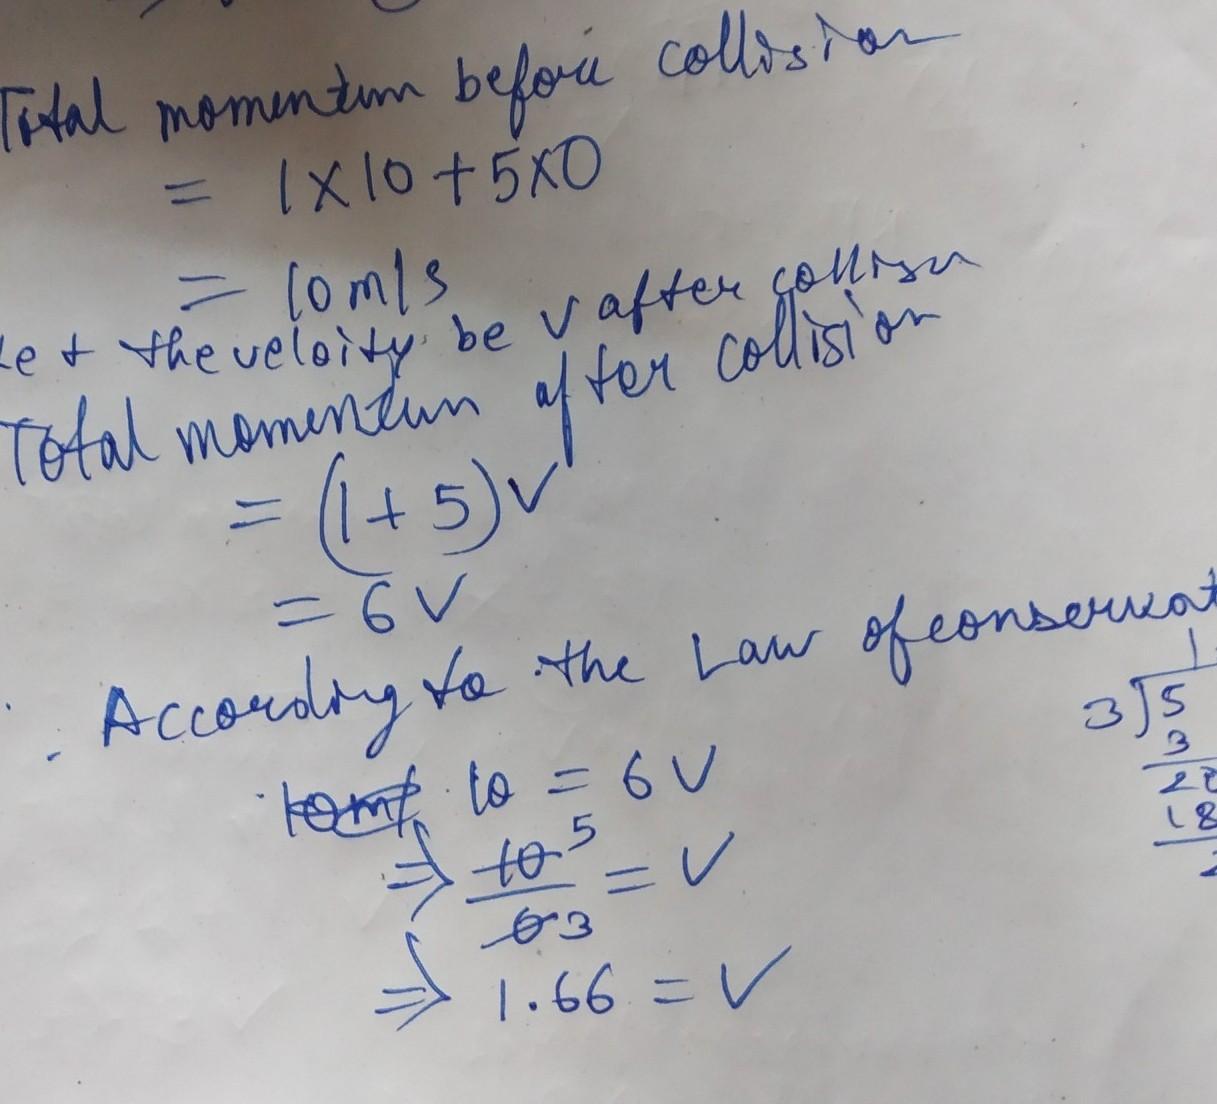 Total momentum before collision
= 1x10+5x0
= 10m/s
Let the veloity be v after collisn
Total momentum after collision
= (1+5)v
= 6v
According to the Law of conservat
10 = 6v
⇒ 10 5 / 6 3 = v
⇒ 1.66 = v
1
3)5
3
18